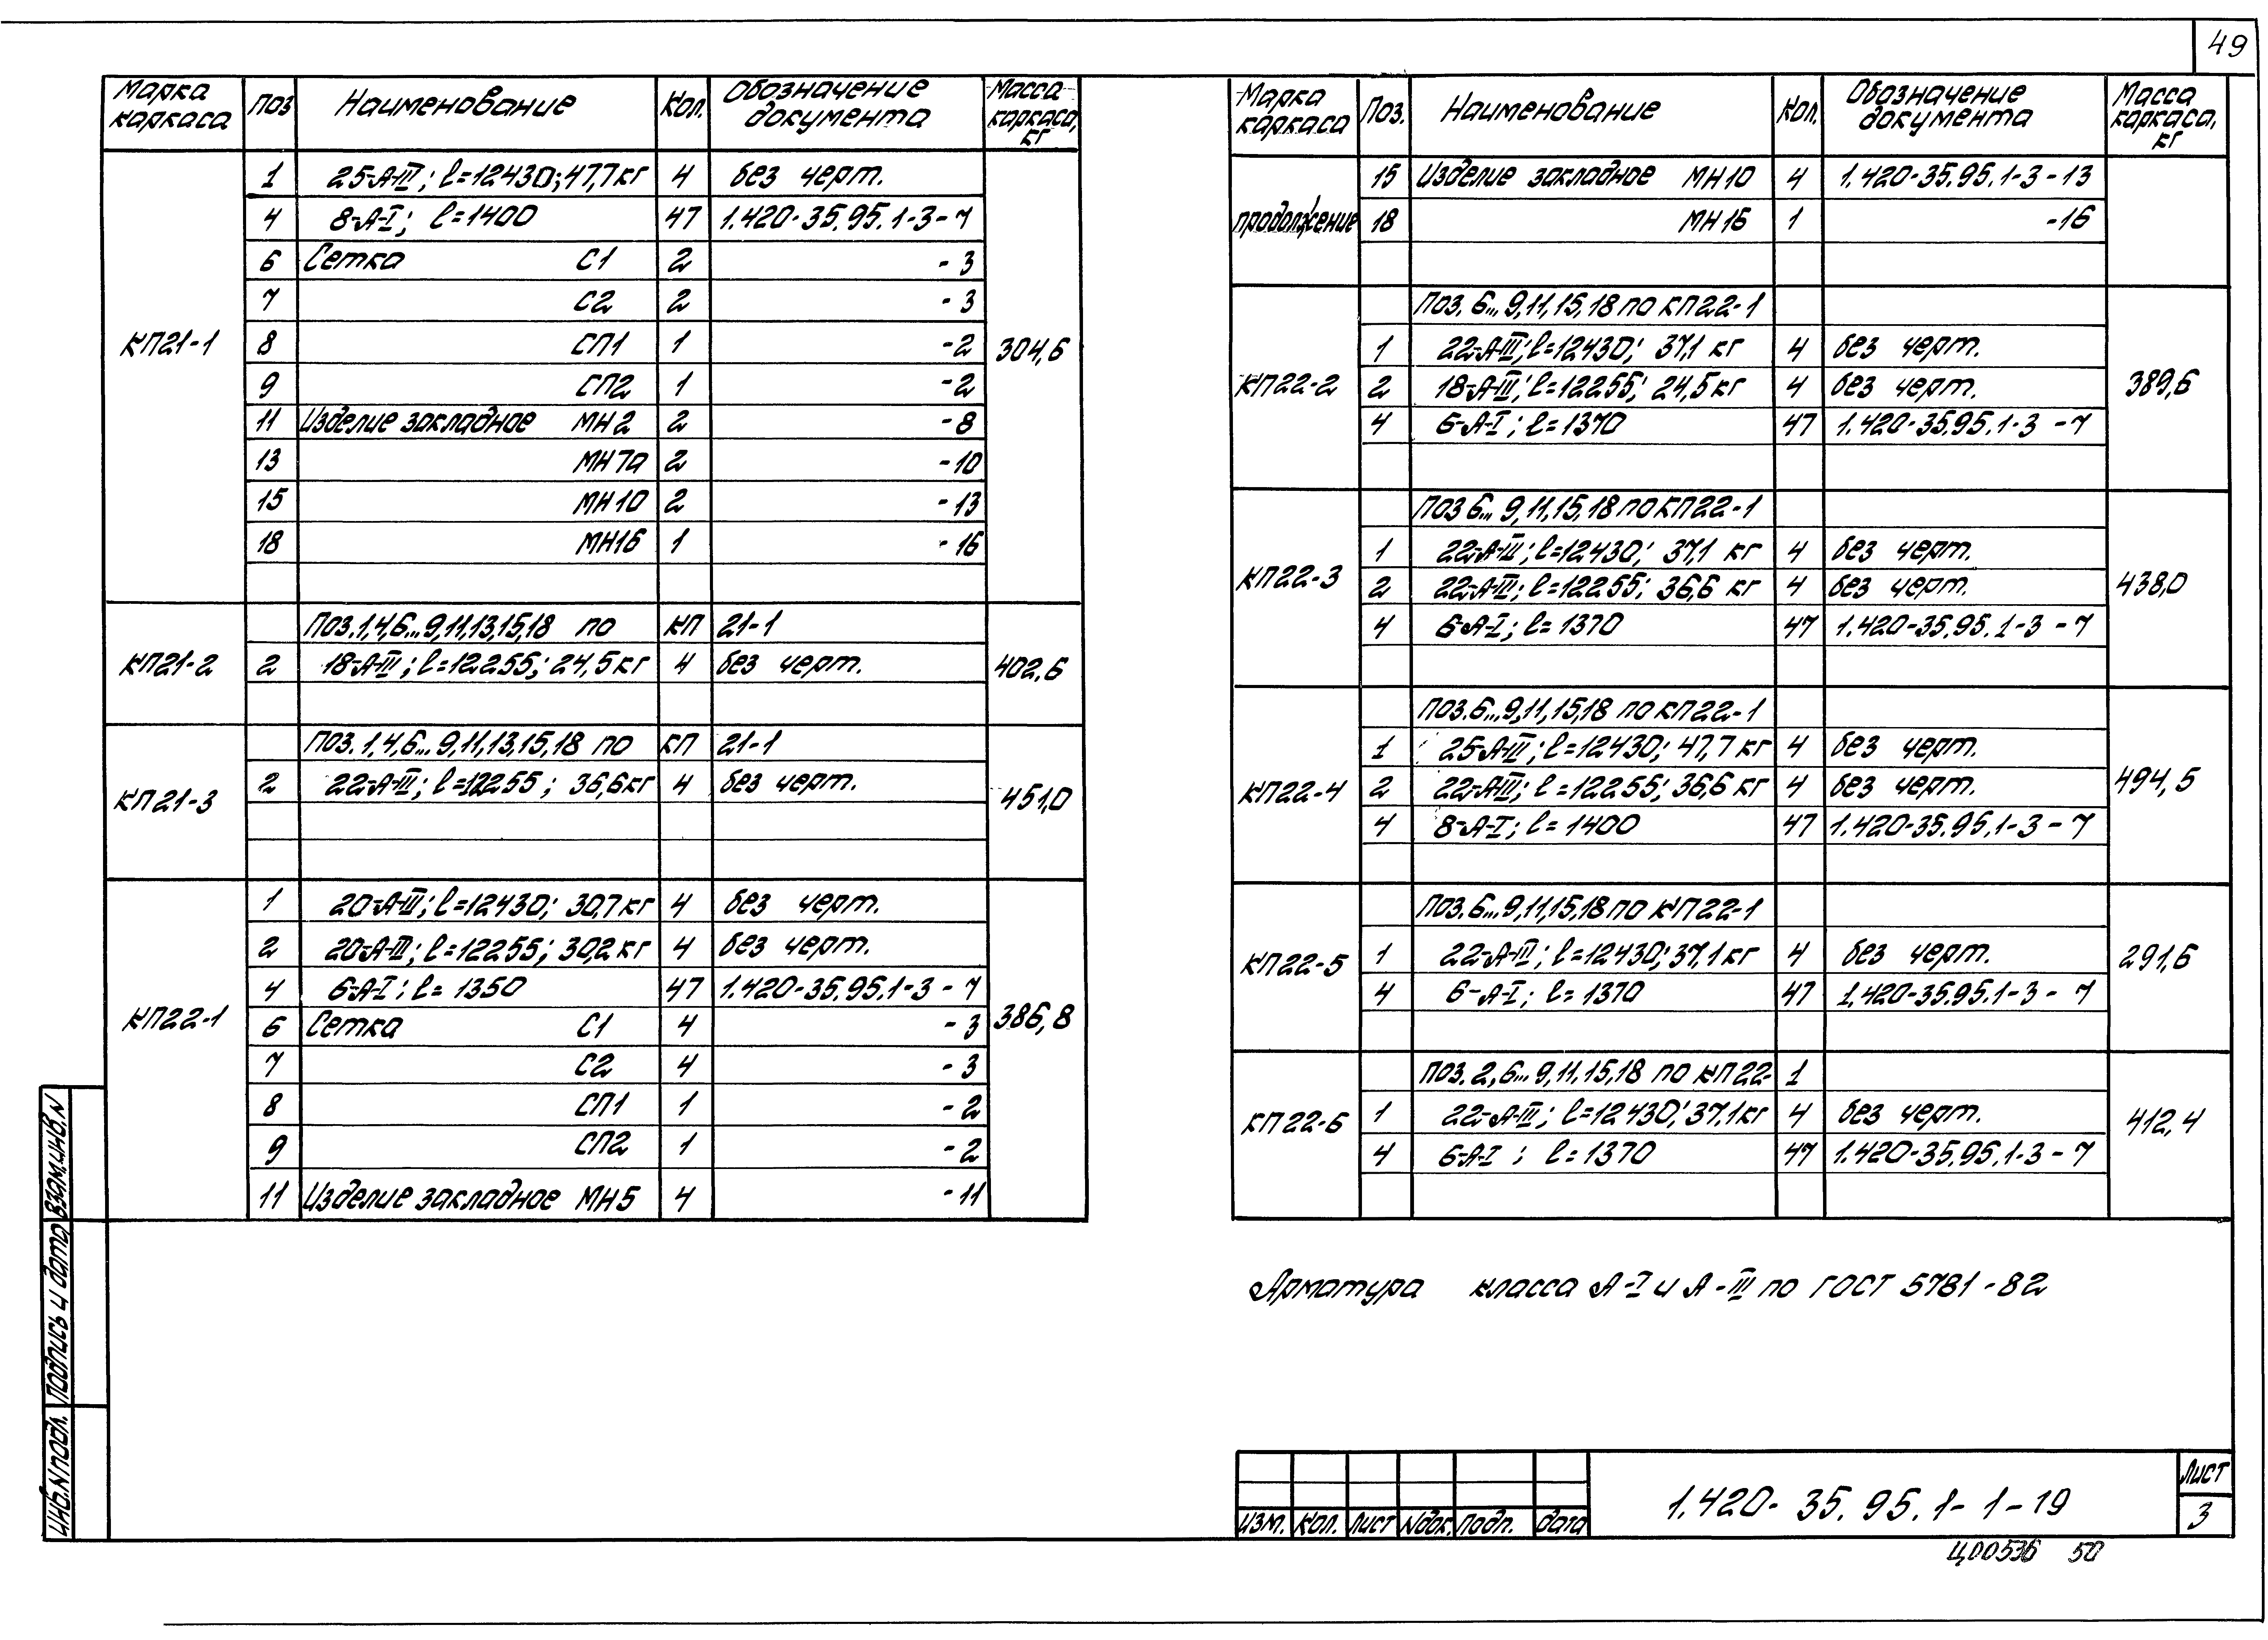 49
Марка каркаса | Поз | Наименование | Кол. | Обозначение документа | Масса каркаса, кг
КП21-1 | 304,6
1 | 25-А-III; l=12430; 47,7кг | 4 | без черт.
4 | 8-А-I; l=1400 | 47 | 1.420-35.95.1-3-7
6 | Сетка С1 | 2 | -3
7 | С2 | 2 | -3
8 | СП1 | 1 | -2
9 | СП2 | 1 | -2
11 | Изделие закладное МН2 | 2 | -8
13 | МН7а | 2 | -10
15 | МН10 | 2 | -13
18 | МН16 | 1 | -16
КП21-2 | 402,6
Поз.1,4,6...9,11,13,15,18 по | КП | 21-1
2 | 18-А-III; l=12255; 24,5кг | 4 | без черт.
КП21-3 | 451,0
Поз. 1,4,6...9,11,13,15,18 по | КП | 21-1
2 | 22-А-III; l=12255; 36,6кг | 4 | без черт.
КП22-1 | 386,8
1 | 20-А-III; l=12430; 30,7кг | 4 | без черт.
2 | 20-А-III; l=12255; 30,2кг | 4 | без черт.
4 | 6-А-I; l=1350 | 47 | 1.420-35.95.1-3-7
6 | Сетка С1 | 4 | -3
7 | С2 | 4 | -3
8 | СП1 | 1 | -2
9 | СП2 | 1 | -2
11 | Изделие закладное МН5 | 4 | -11
Марка каркаса | Поз. | Наименование | Кол. | Обозначение документа | Масса каркаса, кг
продолжение
15 | Изделие закладное МН10 | 4 | 1.420-35.95.1-3-13
18 | МН16 | 1 | -16
КП22-2 | 389,6
Поз. 6...9,11,15,18 по КП22-1
1 | 22-А-III; l=12430; 37,1 кг | 4 | без черт.
2 | 18-А-III; l=12255; 24,5кг | 4 | без черт.
4 | 6-А-I; l=1370 | 47 | 1.420-35.95.1-3-7
КП22-3 | 438,0
Поз 6...9,11,15,18 по КП22-1
1 | 22-А-III; l=12430; 37,1 кг | 4 | без черт.
2 | 22-А-III; l=12255; 36,6 кг | 4 | без черт.
4 | 6-А-I; l=1370 | 47 | 1.420-35.95.1-3-7
КП22-4 | 494,5
Поз.6...9,11,15,18 по КП22-1
1 | 25-А-III; l=12430; 47,7 кг | 4 | без черт.
2 | 22-А-III; l=12255; 36,6 кг | 4 | без черт.
4 | 8-А-I; l=1400 | 47 | 1.420-35.95.1-3-7
КП22-5 | 291,6
Поз.6...9,11,15,18 по КП22-1
1 | 22-А-III; l=12430; 37,1кг | 4 | без черт.
4 | 6-А-I; l=1370 | 47 | 1.420-35.95.1-3-7
КП22-6 | 412,4
Поз. 2,6...9,11,15,18 по КП22- | 1
1 | 22-А-III; l=12430; 37,1кг | 4 | без черт.
4 | 6-А-I; l=1370 | 47 | 1.420-35.95.1-3-7
Арматура класса А-I и А-III по ГОСТ 5781-82
Взам.инв.N
Подпись и дата
Инв.N подл.
Изм. | Кол. | Лист | Nдок. | Подп. | Дата
1.420-35.95.1-1-19
Лист
3
Ц00536 50